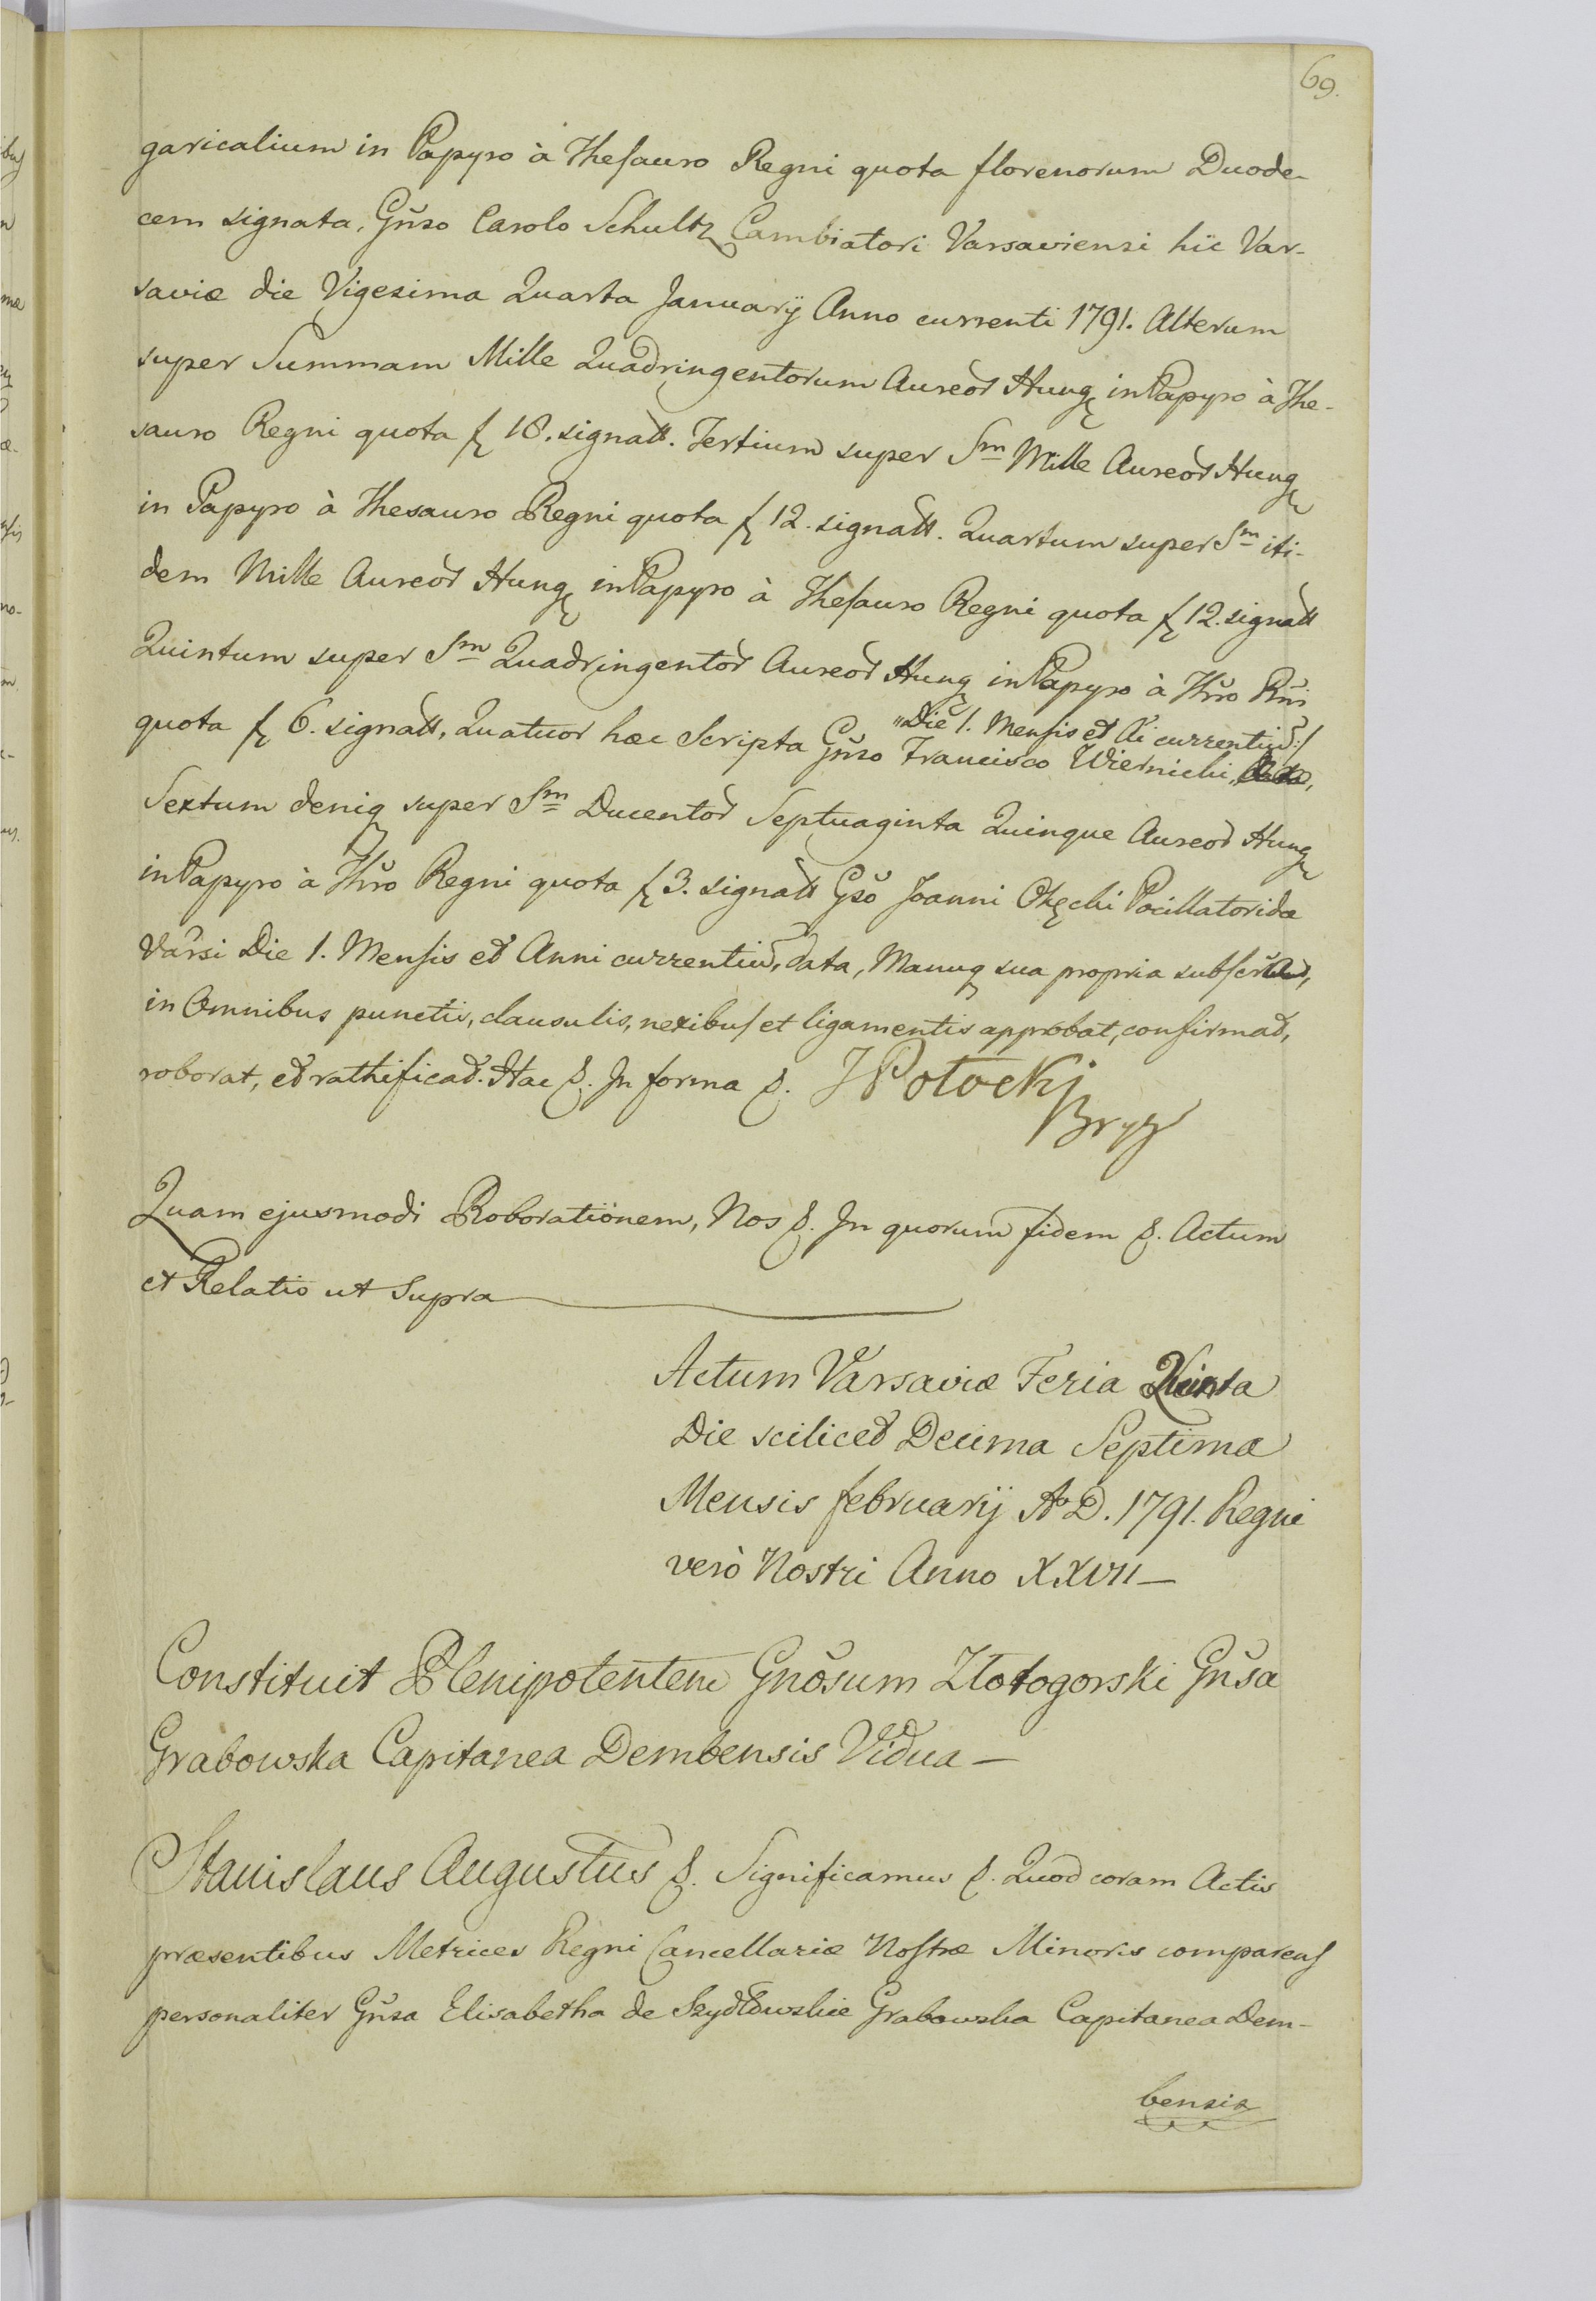 69.
garicalium in Papyro à Thesauro Regni quota florenorum Duode-
cem signata, Gñso Carolo Schultz Cambiatori Varsaviensi hïc Var-
saviæ die Vigesima Quarta Januarÿ Anno currenti 1791. Alterum
super Summam Mille Quadringentorum Aureor Hung in Papyro à The-
sauro Regni quota f 18. signatt. Tertium super Sm Mille Aureor Hung
in Papyro à Thesauro Regni quota f 12. signatt. Quartum super Sm iti-
dem Mille Aureor Hung in Papyro à Thesauro Regni quota f 12. signatt
Quintum super Sm Quadringentor Aureor Hung in Papyro à Thro Rni
"Die 1. Mensis et Ai currentiu:/
quota f 6. signatt, Quatuor hæc Scripta Gñso Francisco Wiernicki,
Sextum deniq super Sm Ducentor Septuaginta Quinque Aureor Hung
in Papyro à Thro Regni quota f 3. signatt Gso Joanni Okęcki Pocillatoridæ
Varsi Die 1. Mensis et Anni currentiu, data, Manuq sua propria subscr,
in Omnibus punctis, clausulis, nexibus et ligamentis approbat, confirmat,
roborat, et rathificat. Hac &. In forma &. JPotocki
Quam ejusmodi Roborationem, Nos &. In quorum fidem &. Actum
et Relatio ut Supra
Actum Varsaviæ Feria Quinta
Die scilicet Decima Septima
Mensis februarÿ Ao D. 1791. Regni
verò Nostri Anno XXVII—
Constituit Plenipotentem Gnõsum Złotogorski Gñsa
Grabowska Capitanea Dembensis Vidua—
Stanislaus Augustus &. Significamus &. Quod coram Actis
præsentibus Metrices Regni Cancellariæ Nostræ Minoris comparens
personaliter Gñsa Elisabetha de Szydłowskie Grabowska Capitanea Dem-
bensis